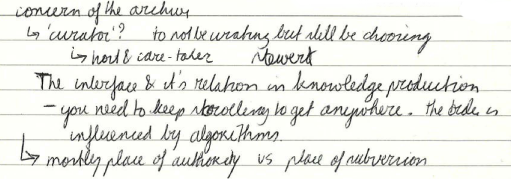 concern of the archive
↳ 'curator'? to not be curating but still be choosing
↳ host & care-taker Stewert
The interface & it's relation in knowledge production
- you need to keep scrolling to get anywhere. the order is
influenced by algorithms.
↳ mostly place of authority vs place of subversion